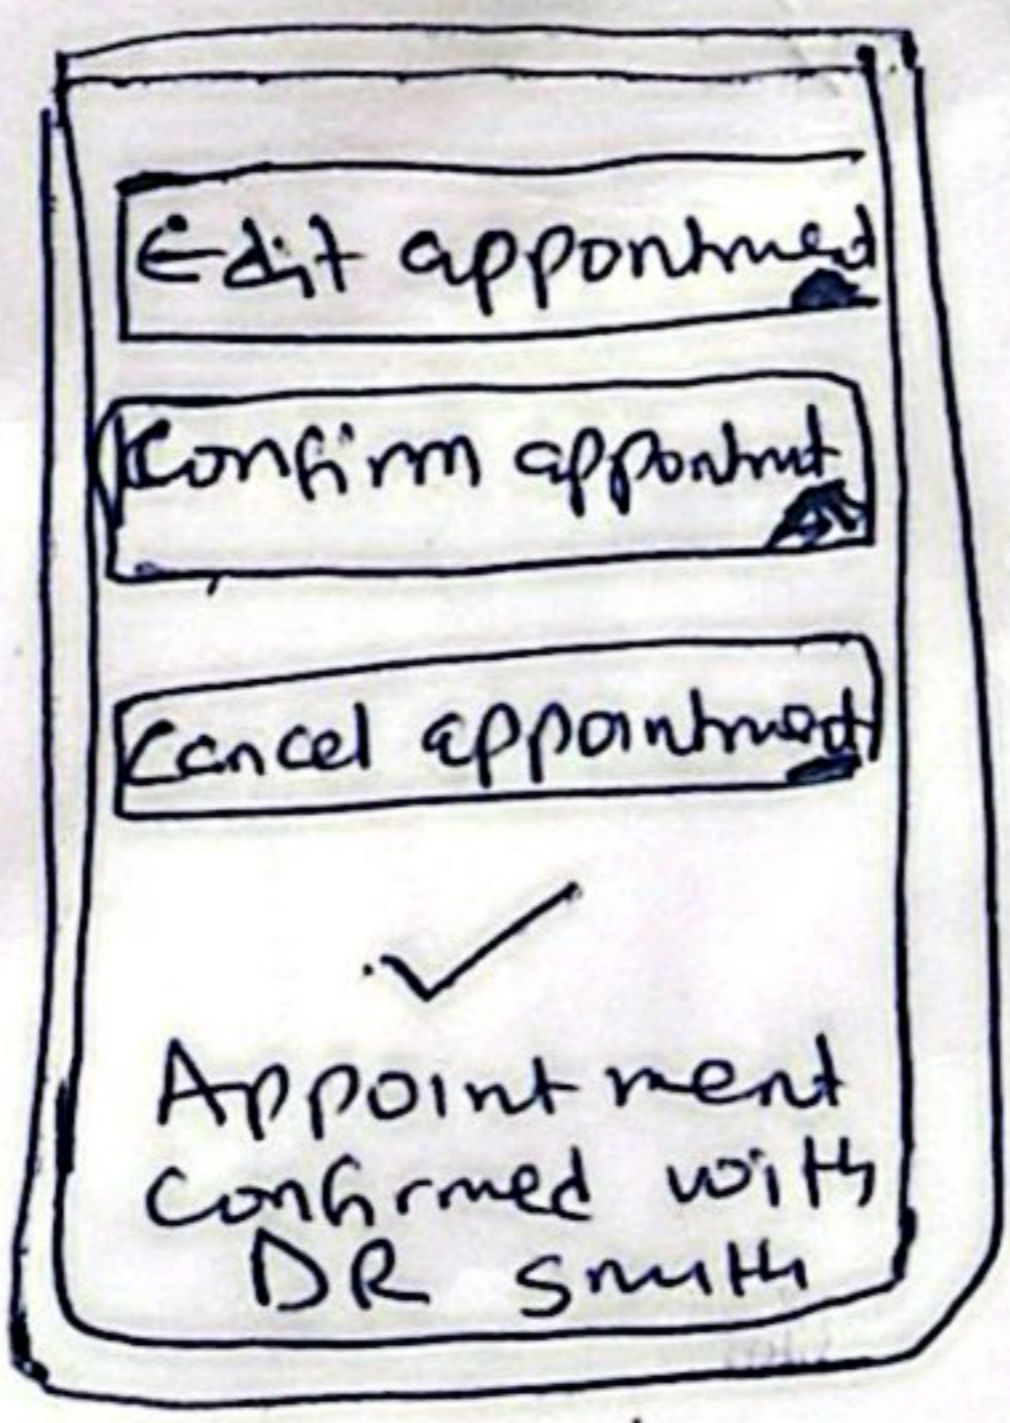 Edit appontment
Confirm appontmt
Cancel appointment
Appointment
confirmed with
DR Smith